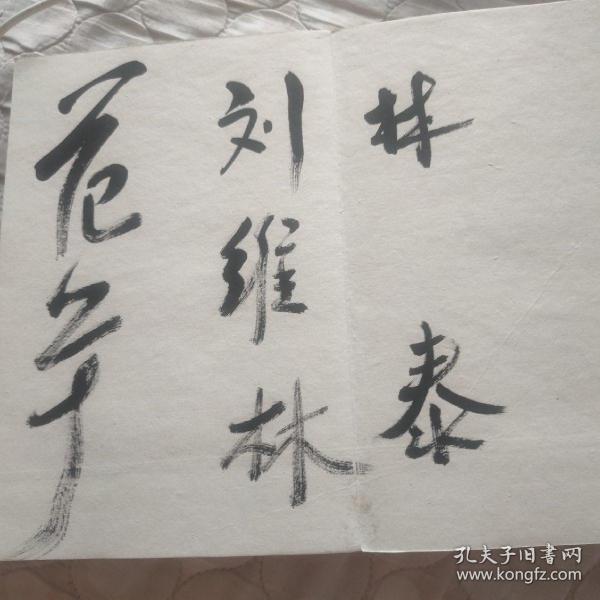 林泰
刘维林
孔夫子旧書网
www.kongfz.com